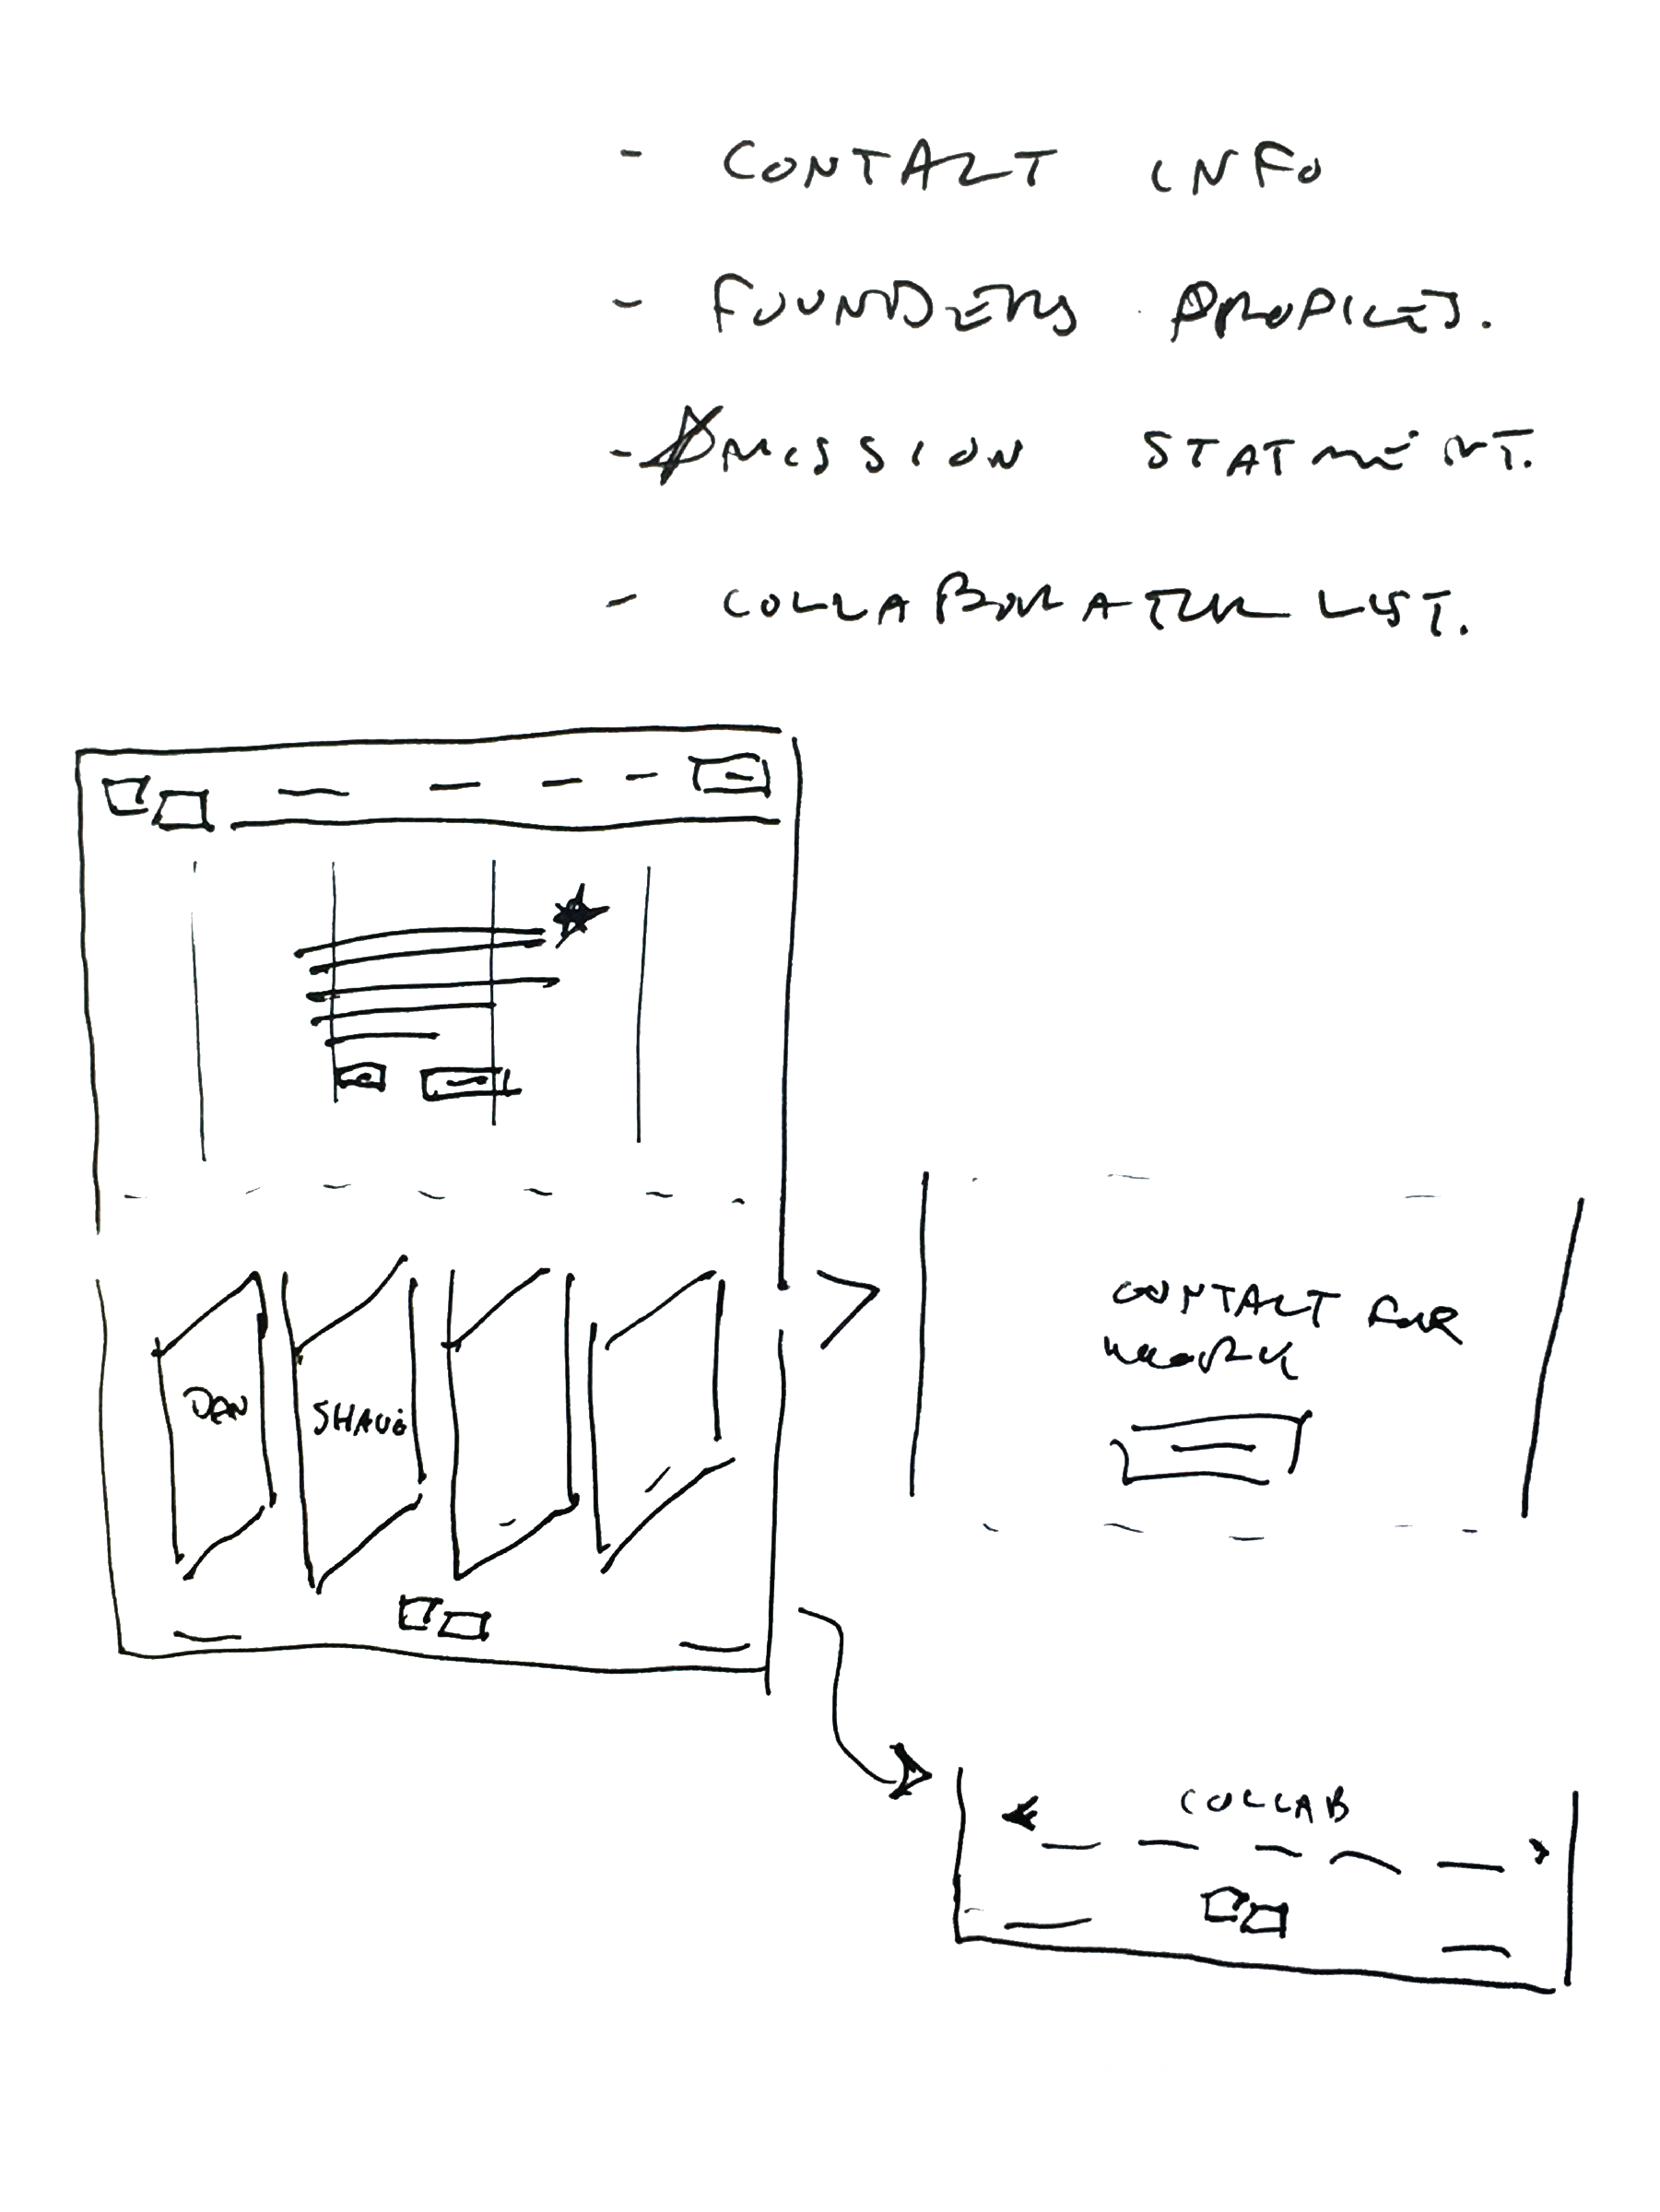 - CONTACT INFO
- FOUNDERS PROFILES.
- MISSION STATMENT.
- COLLABORATOR LIST.
DAN
SHAUN
CONTACT FOR
WORK
COLLAB